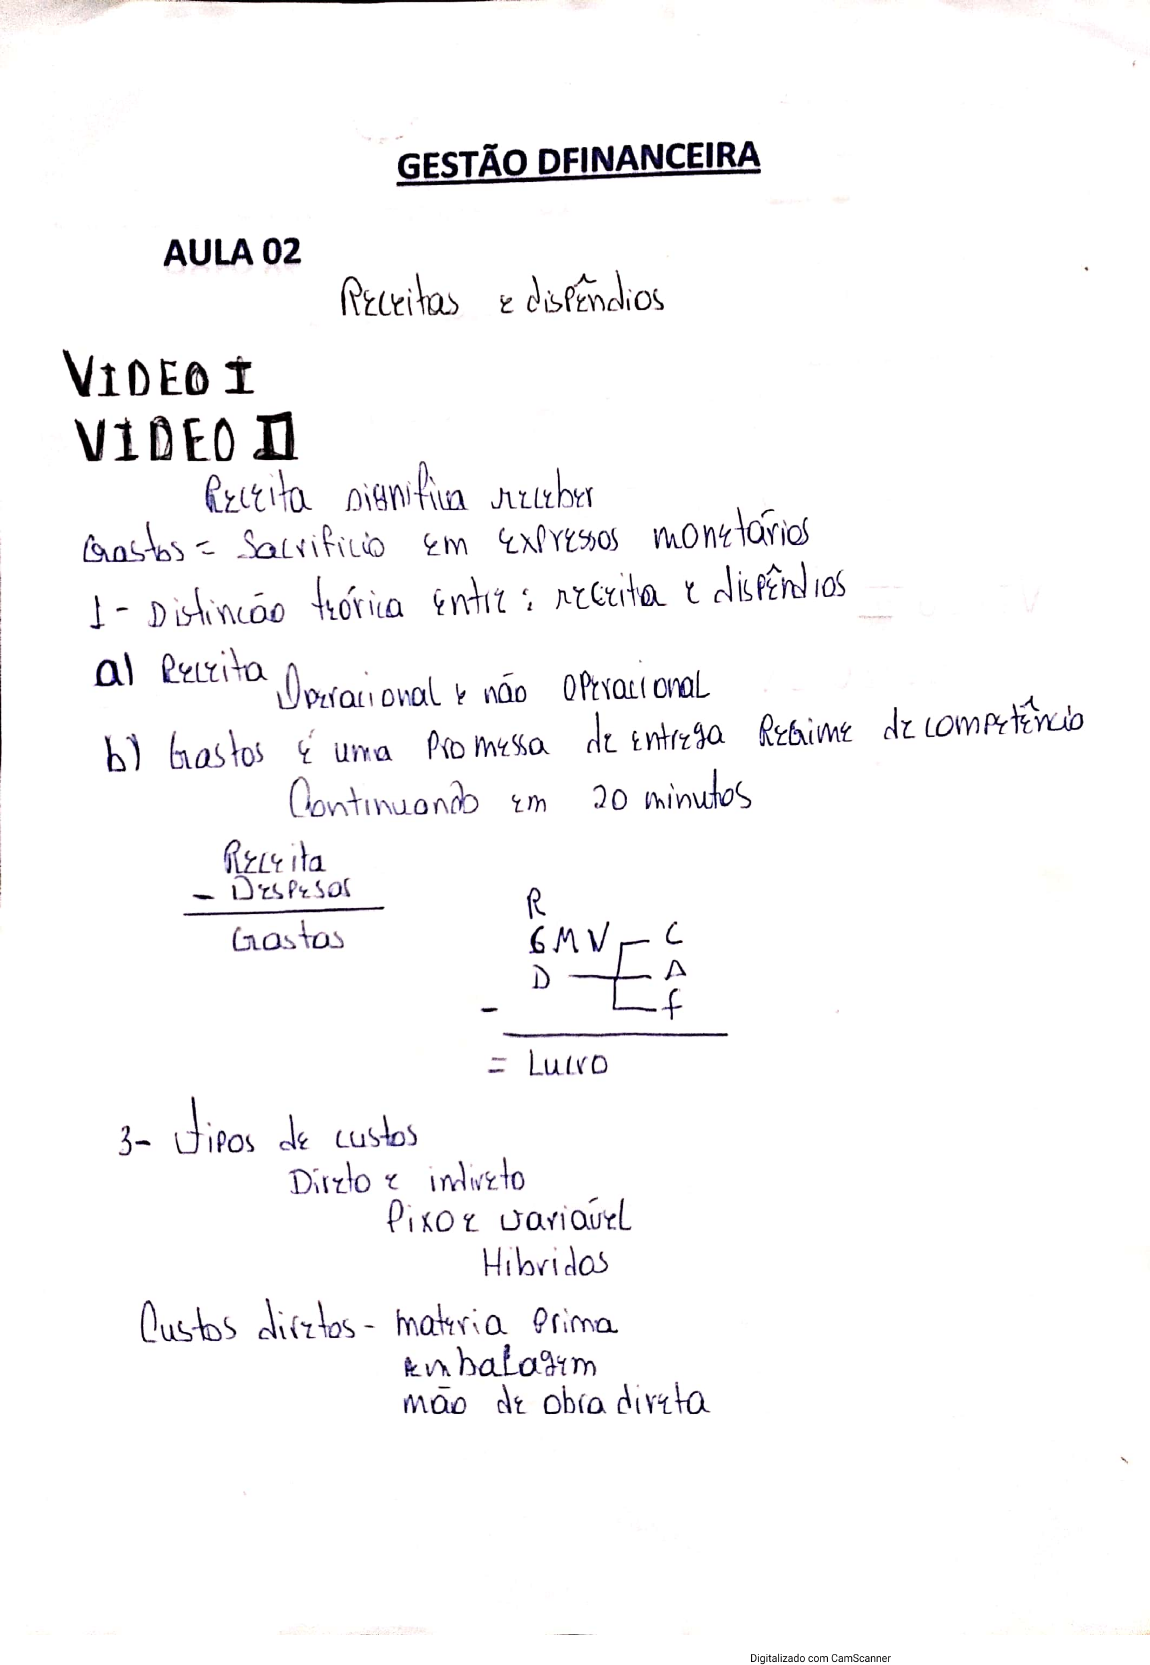 GESTÃO DFINANCEIRA
AULA 02
Receitas e dispêndios
VIDEO I
VIDEO II
Receita significa receber
Gastos = Sacrificio em expressos monetários
1 - Distincão teórica entre : receita e dispêndios
a) Receita Operacional e não OPeracional
b) Gastos é uma Promessa de entrega Regime de competência
Continuando em 20 minutos
Receita
- Despesas
Gastos
R
6MV C
D A
- f
= Lucro
3- Tipos de custos
Direto e indireto
Pixo e variável
Hibridos
Custos diretos - materia Prima
embalagem
mão de obra direta
Digitalizado com CamScanner